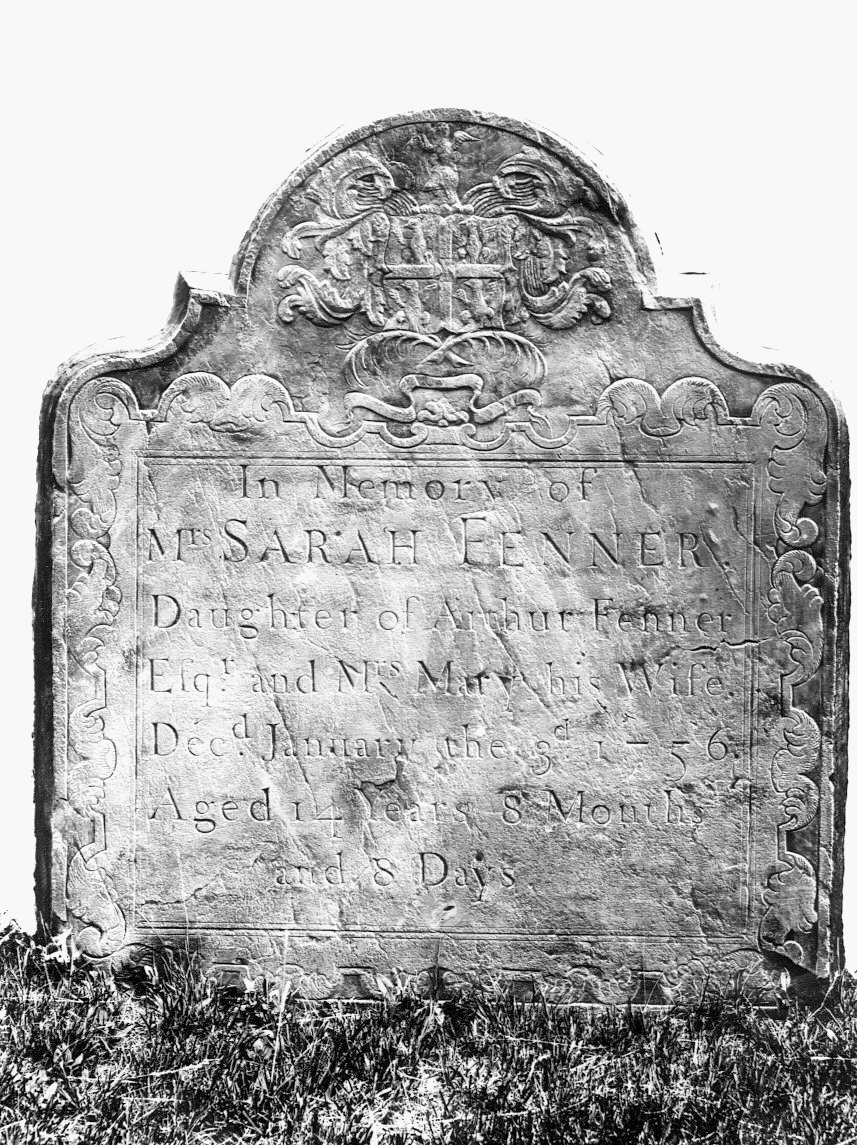 In Memory of
Mrs SARAH FENNER
Daughter of Arthur Fenner
Eſqr. and Mrs Mary his Wife.
Decd. January the 3d. 1756.
Aged 14 Years 8 Months
and 8 Days.